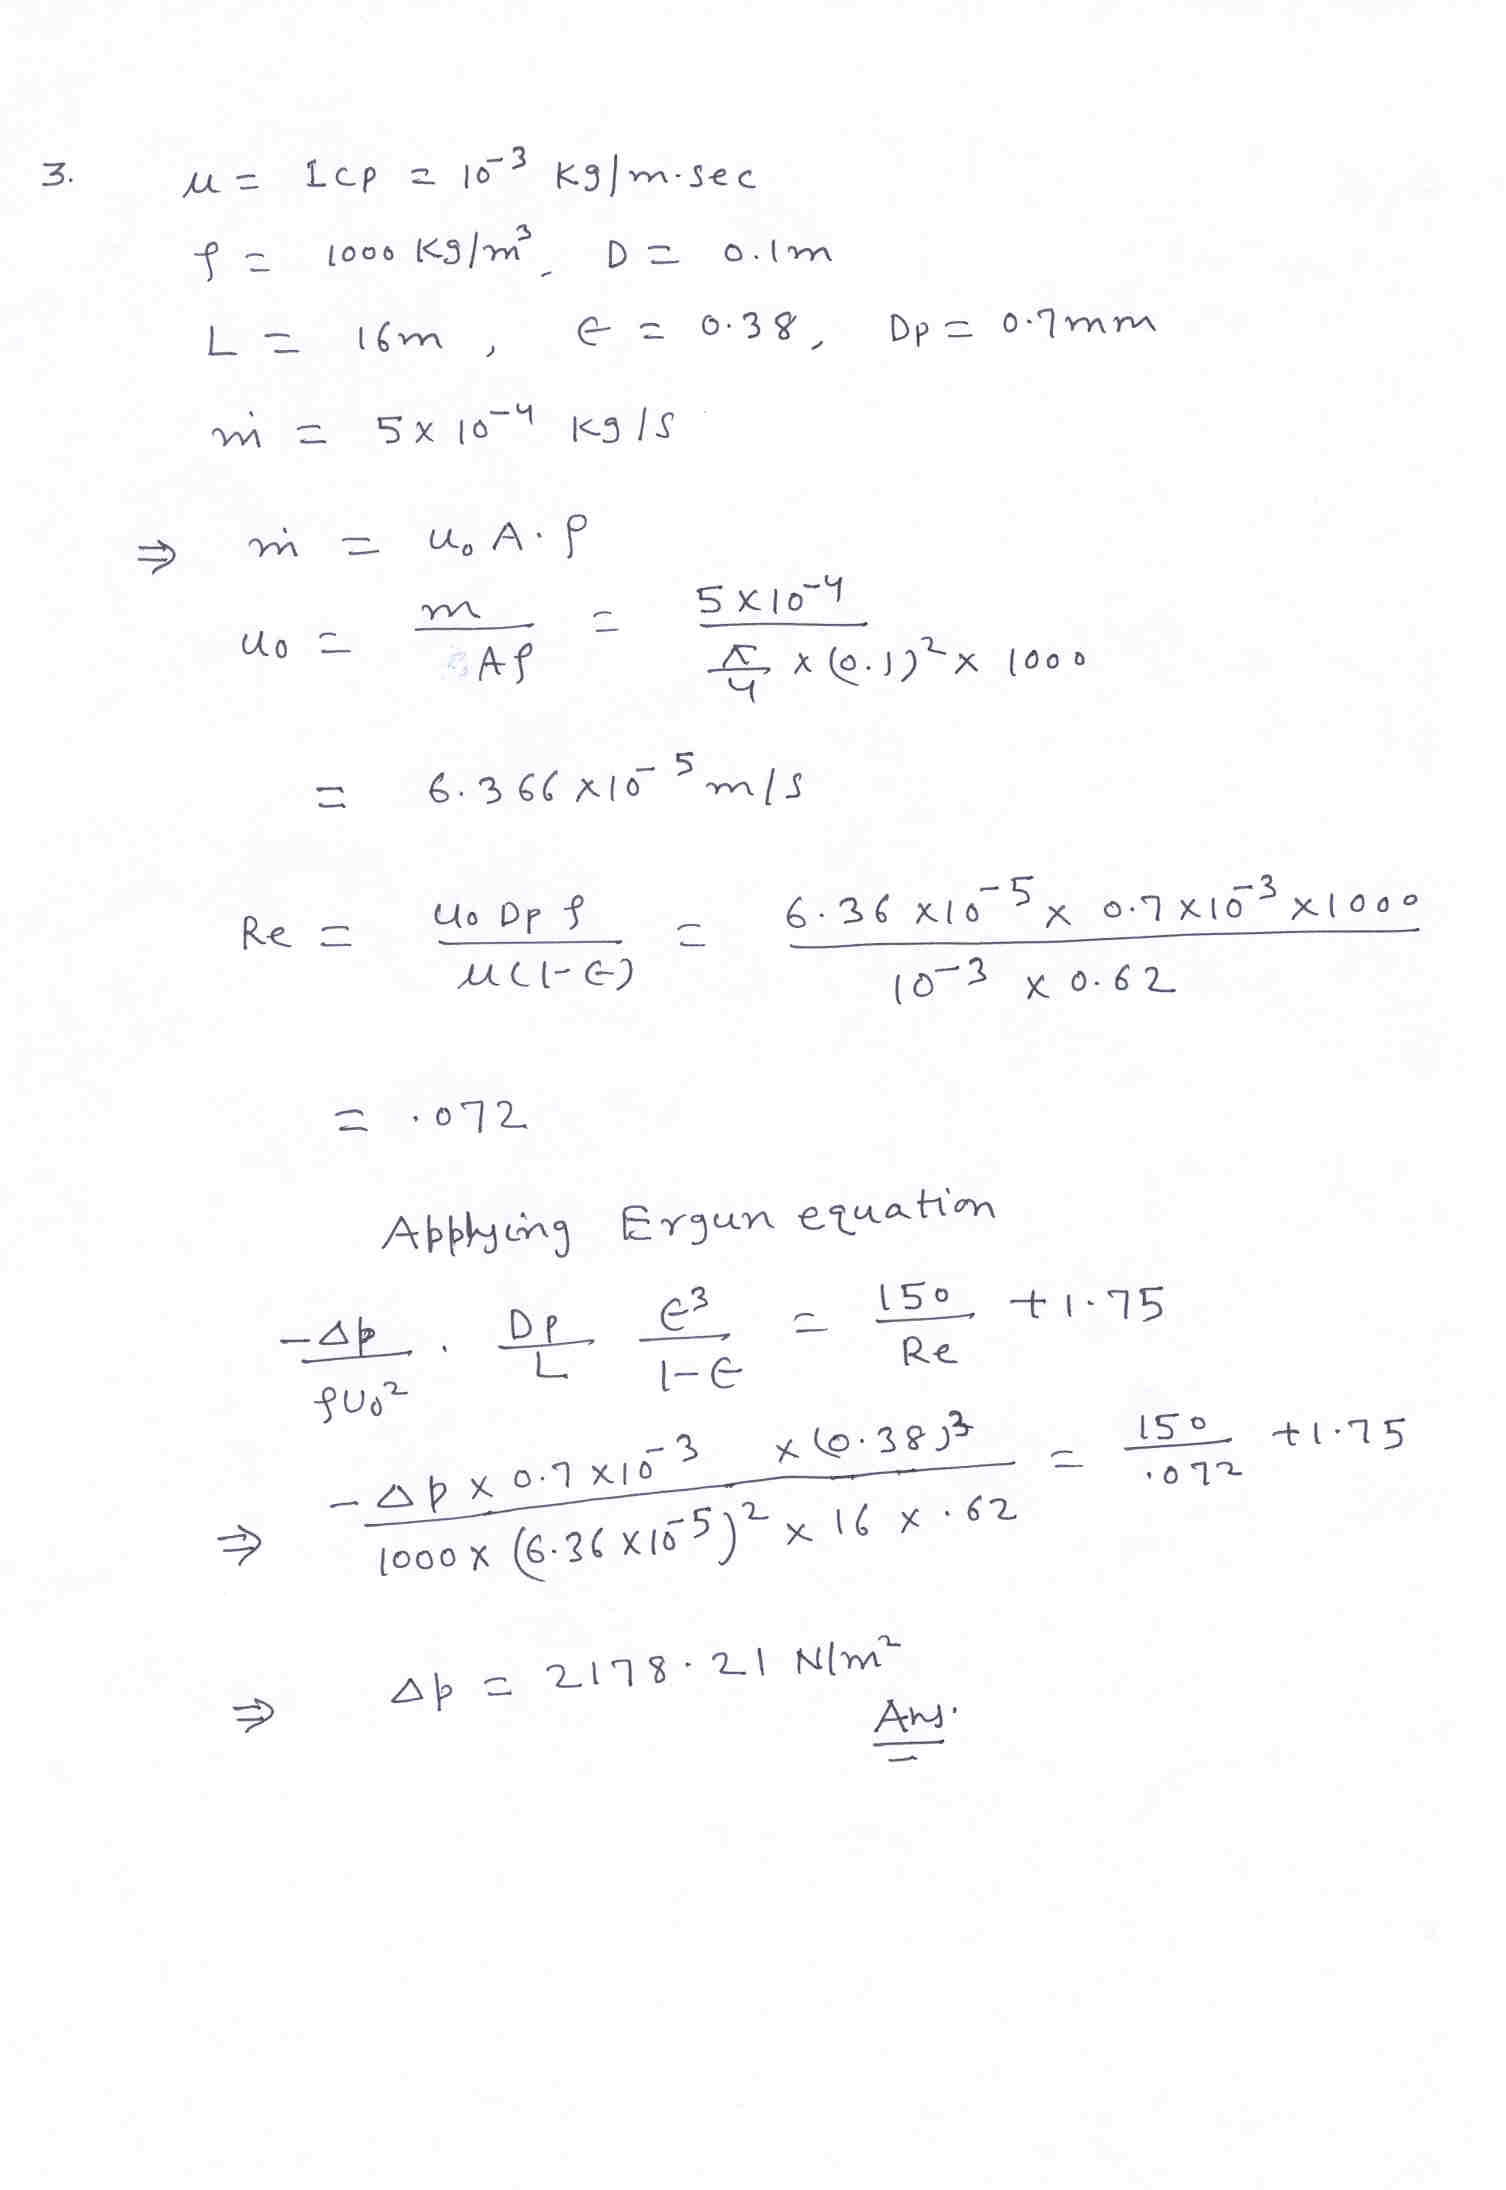 3. μ = 1cp = 10⁻³ kg/m·sec
ρ = 1000 kg/m³, D = 0.1m
L = 16m, ϵ = 0.38, Dp = 0.7mm
ṁ = 5 × 10⁻⁴ kg/s
⇒ ṁ = u₀ A · ρ
u₀ = m / Aρ = 5 × 10⁻⁴ / (π/4 × (0.1)² × 1000)
= 6.366 × 10⁻⁵ m/s
Re = u₀ Dp ρ / μ(1-ϵ) = 6.36 × 10⁻⁵ × 0.7 × 10⁻³ × 1000 / (10⁻³ × 0.62)
= .072
Applying Ergun equation
-Δp / ρu₀² · Dp / L ϵ³ / (1-ϵ) = 150 / Re + 1.75
⇒ -Δp × 0.7 × 10⁻³ × (0.38)³ / (1000 × (6.36 × 10⁻⁵)² × 16 × .62) = 150 / .072 + 1.75
⇒ Δp = 2178.21 N/m²
Ans.